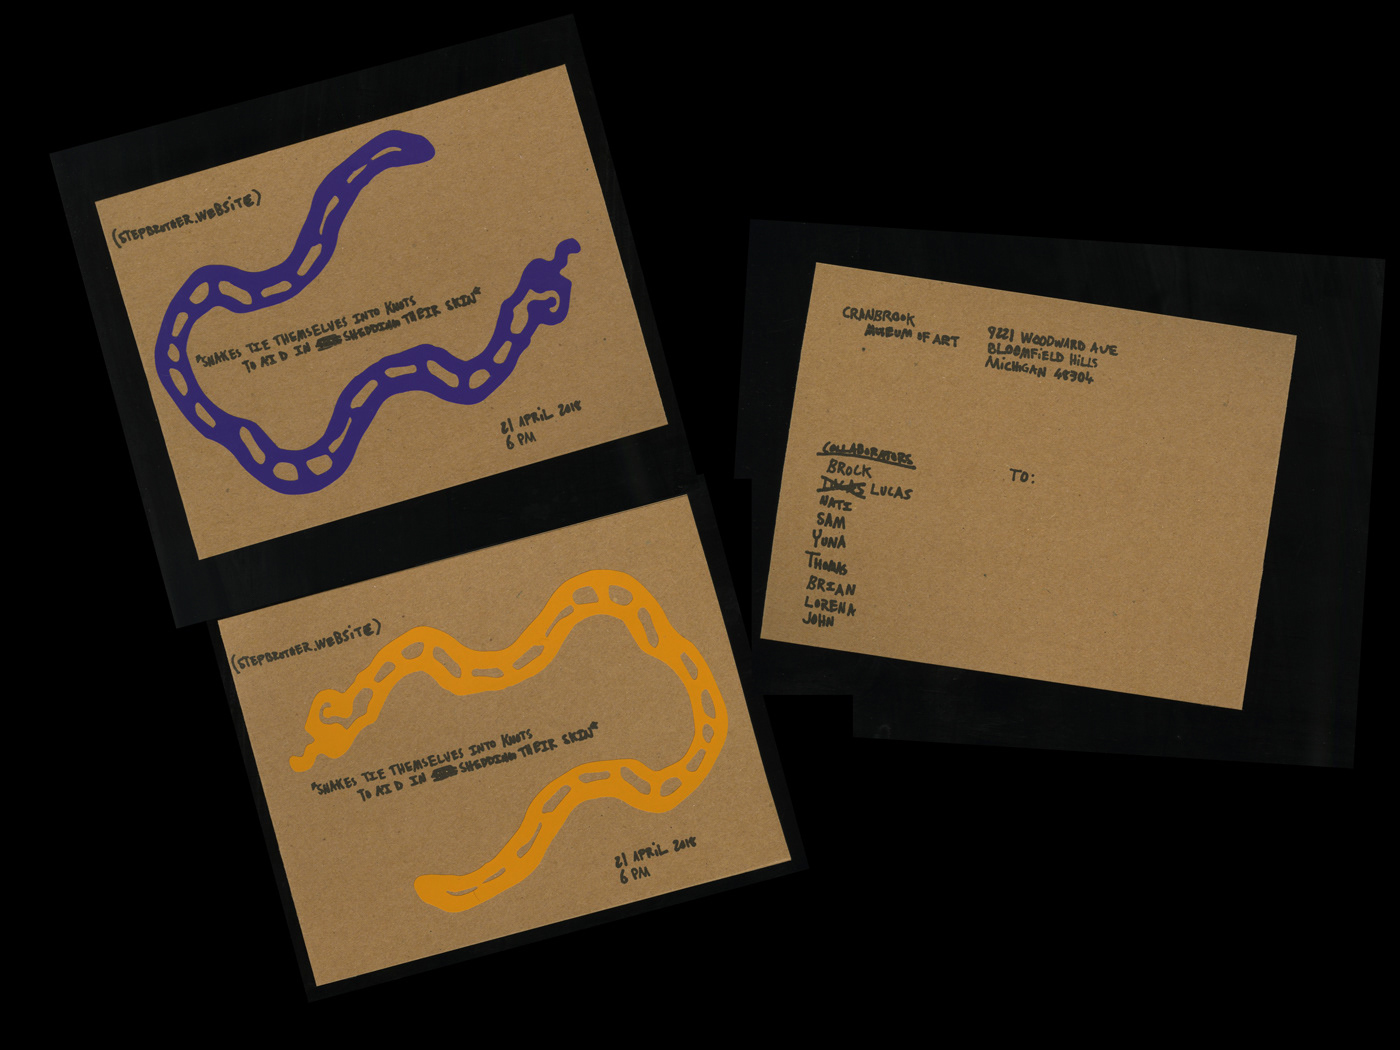 (STEPBROTHER.WEBSITE)
"SNAKES TIE THEMSELVES INTO KNOTS
TO AID IN SHEDDING THEIR SKIN"
21 APRIL 2018
6 PM
(STEPBROTHER.WEBSITE)
"SNAKES TIE THEMSELVES INTO KNOTS
TO AID IN SHEDDING THEIR SKIN"
21 APRIL 2018
6 PM
CRANBROOK
MUSEUM OF ART
9221 WOODWARD AVE
BLOOMFIELD HILLS
MICHIGAN 48304
COLLABORATORS
BROCK
LUCAS
NATI
SAM
YUNA
THOMAS
BRIAN
LORENA
JOHN
TO: